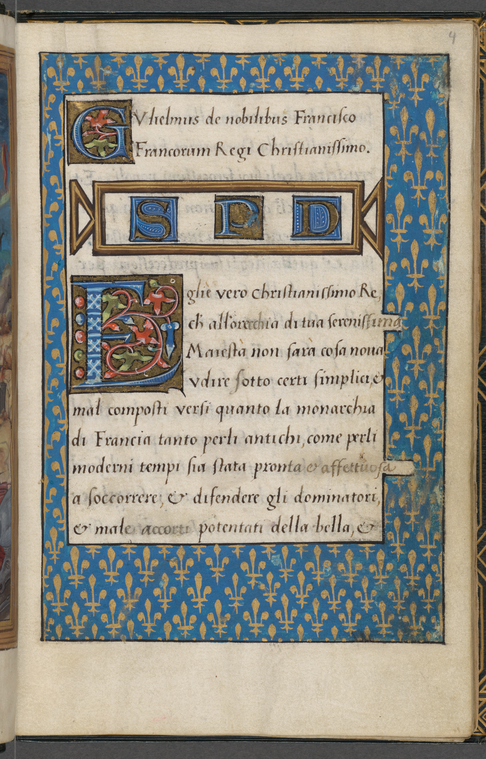 4
GVlielmus de nobilibus Francisco
Francorum Regi Christianissimo.
S P D
Eglie vero christianissimo Re,
ch all'orechia di tua serenissima
Maiesta non sara cosa noua
vdire sotto certi simplici, e
mal composti versi quanto la monarchia
di Francia tanto perli antichi, come perli
moderni tempi sia stata pronta e affettuosa
a soccorrere, & difendere gli dominatori,
& male accorti potentati della bella, &